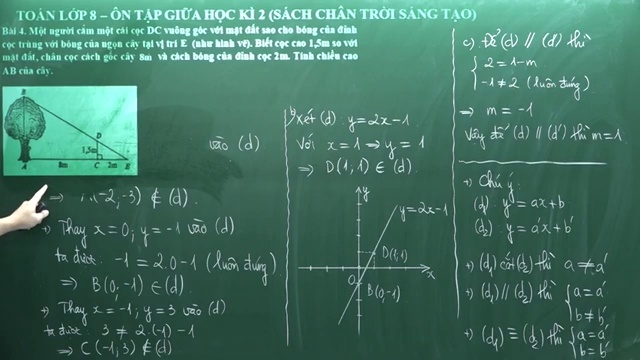 TOÁN LỚP 8 – ÔN TẬP GIỮA HỌC KÌ 2 (SÁCH CHÂN TRỜI SÁNG TẠO)
Bài 4. Một người cắm một cái cọc DC vuông góc với mặt đất sao cho bóng của đỉnh
cọc trùng với bóng của ngọn cây tại vị trí E (như hình vẽ). Biết cọc cao 1,5m so với
mặt đất, chân cọc cách gốc cây 8m và cách bóng của đỉnh cọc 2m. Tính chiều cao
AB của cây.
B
D
1,5m
A 8m C 2m E
vào (d)
(-2; -3) ∉ (d).
+ Thay x = 0; y = -1 vào (d)
ta được: -1 = 2.0 - 1 (luôn đúng)
⇒ B(0; -1) ∈ (d).
+ Thay x = -1; y = 3 vào (d)
ta được: 3 ≠ 2.(-1) - 1
⇒ C(-1; 3) ∉ (d)
b) Xét (d) y = 2x - 1
Với x = 1 ⇒ y = 1
⇒ D(1; 1) ∈ (d).
y
y = 2x - 1
D(1; 1)
O
x
B(0; -1)
c) Để (d) // (d') thì
2 = 1 - m
-1 ≠ 2 (luôn đúng)
⇒ m = -1
Vậy để (d) // (d') thì m = 1.
+ Chú ý:
(d₁): y = ax + b
(d₂): y = a'x + b'
+ (d₁) cắt (d₂) thì a ≠ a'
+ (d₁) // (d₂) thì { a = a'
b ≠ b'
+ (d₁) ≡ (d₂) thì { a = a'
b = b'